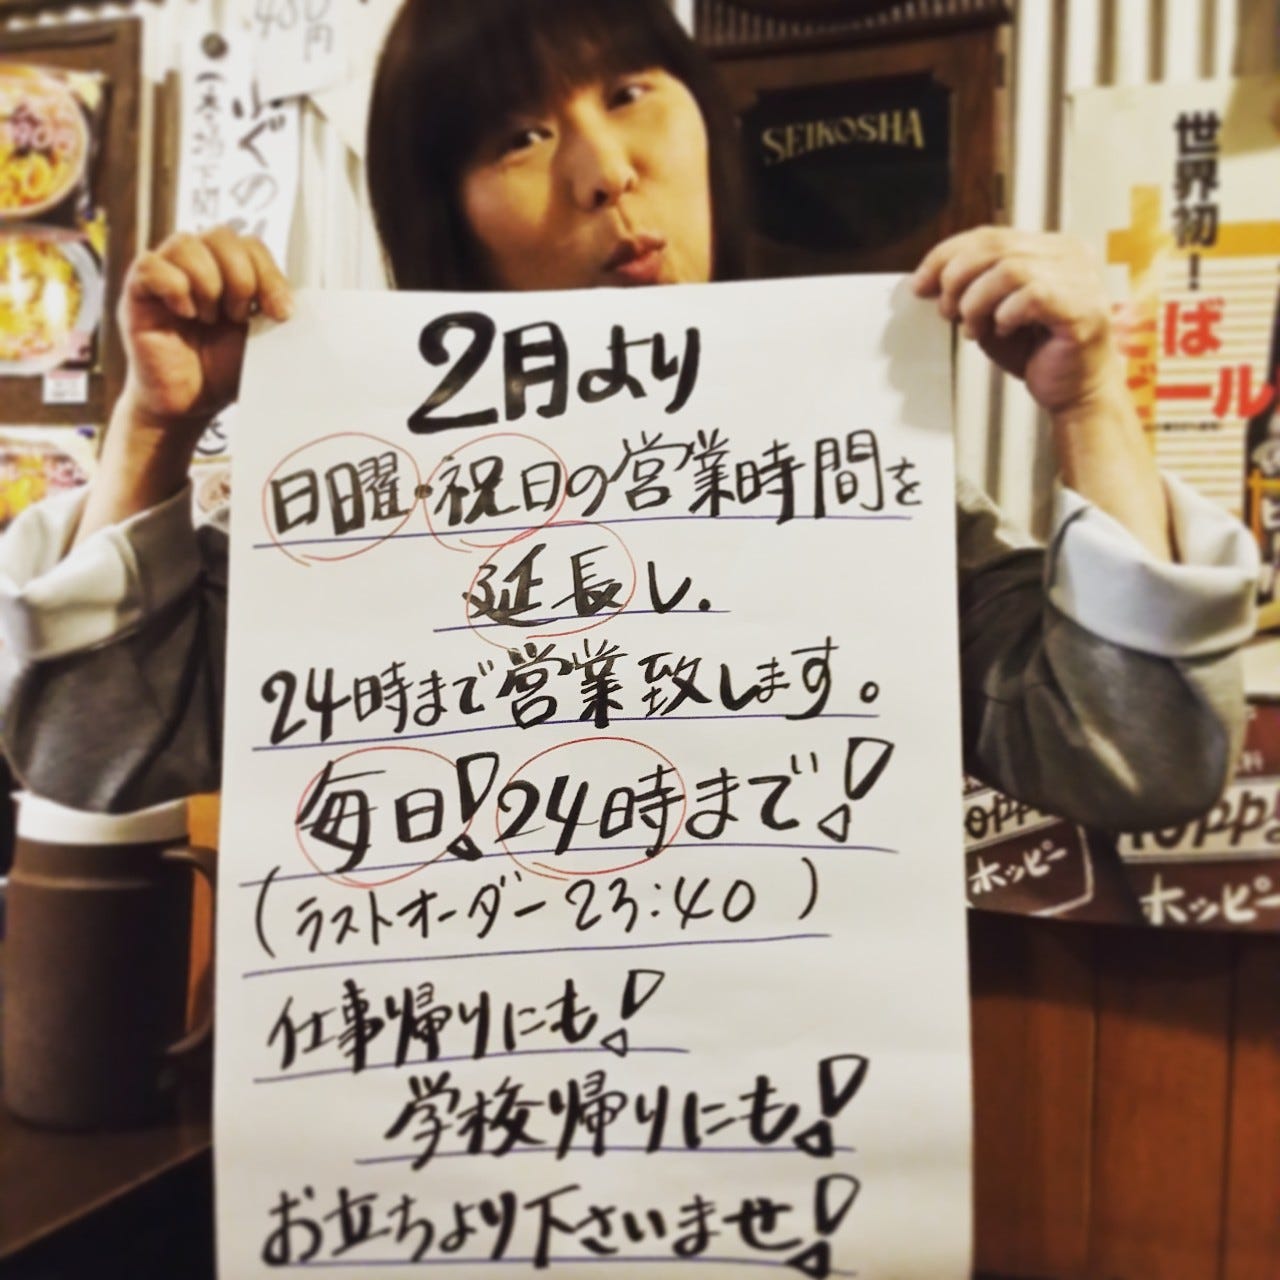 2月より
日曜・祝日の営業時間を
延長し.
24時まで営業致します。
毎日!24時まで!
(ラストオーダー23:40)
仕事帰りにも!
学校帰りにも!
お立ちより下さいませ!
SEIKOSHA
世界初!
そば
ビール
ホッピー
ホッピー
円